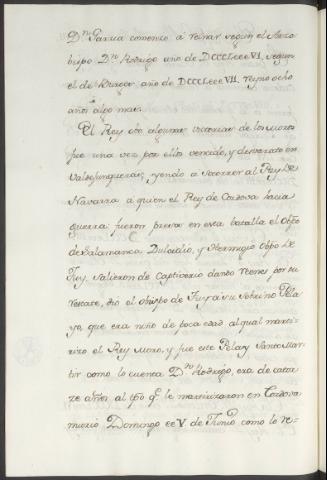 Dⁿ Garcia comenzo à reinar segun el Arzo
bispo Dⁿ Rodrigo año de DCCCLeeeVI, segun
el de Burgos año de DCCCLeeeVII. reyno ocho
años algo mas.
El Rey obo algunas victorias de los moros
fue una vez por ellos vencido, y desbarato en
Valdejunqueras; yendo à socorrer al Rey de
Navarra à quien el Rey de Cordova hacia
guerra: fueron presos en esta batalla el Obpo
de Salamanca Dulcidio, y Hermogio Obpo de
Tuy, salieron de Captiverio dando Reenes por su
rescate, dio el obispo de Tuy à su Sobrino Pela
yo, que era niño de poca edad, al qual marti-
rizo el Rey Moro, y fue este Pelayo Santo Mar-
tir como lo cuenta Dⁿ Rodrigo, era de cator-
ze años al tpo q.ᵉ le martirizaron en Cordova
murio Domingo eeV de Junio como lo re-